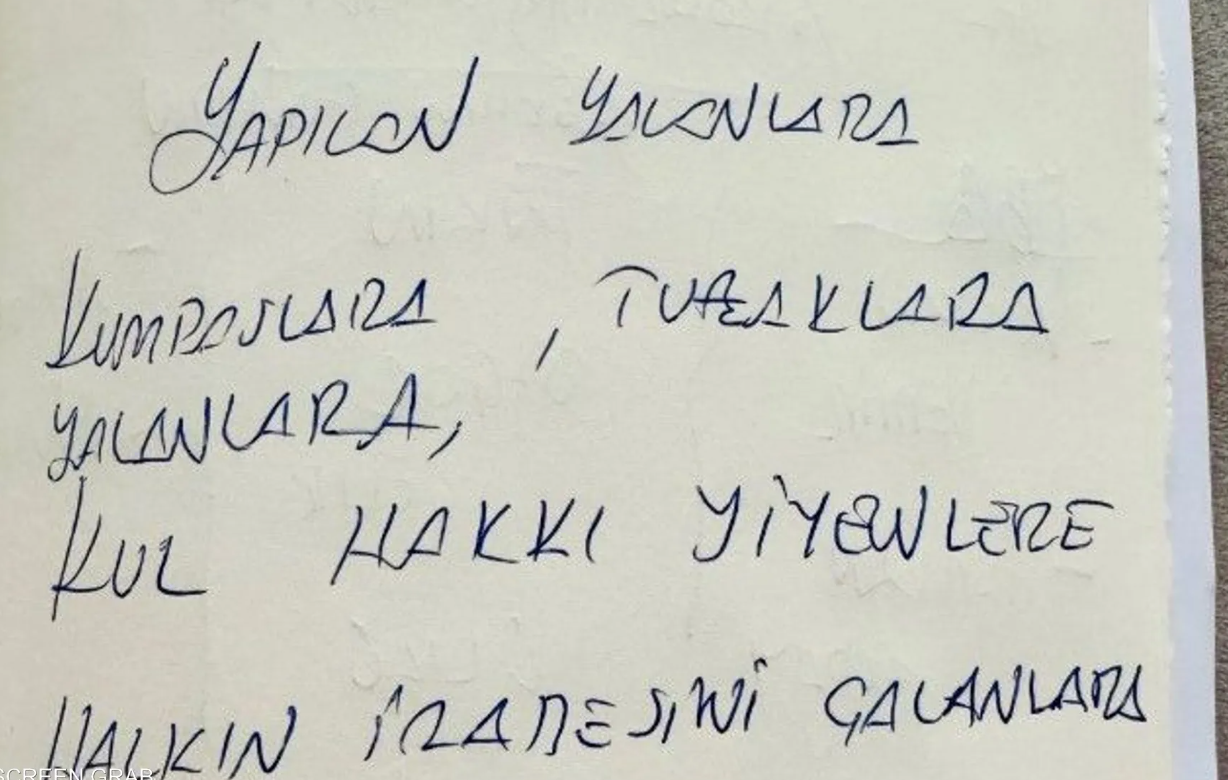 YAPILAN YALANLARA
KUMPASLARA, TUZAKLARA
YALANLARA,
KUL HAKKI YİYENLERE
HALKIN İRADESİNİ ÇALANLARA
SCREEN GRAB